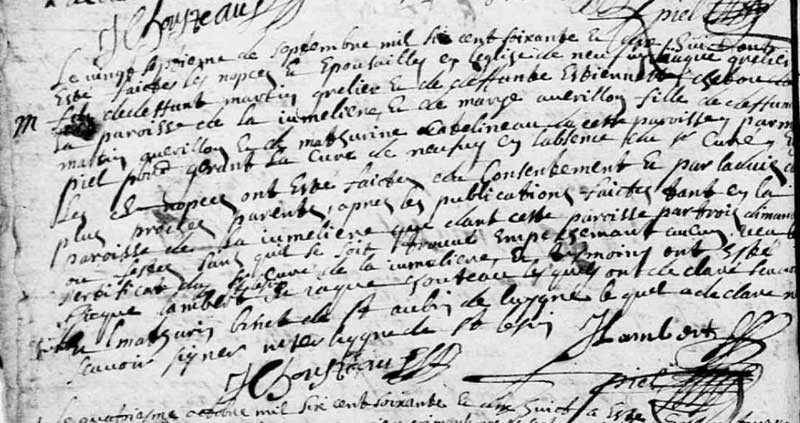 J Chousteau piel
Le vingt septiesme de septembre mil six cent soixante et dix huict ont
esté faictes les nopces et Epousailles en leglise de neufvy Jaque grelier
fils de deffunt martin grelier et de deffunte Estiennette
M la paroisse de la iumeliere, et de marye averillon fille de deffunt
martin averillon et de mathurine Catelineau de cette paroisse par m
piel gerant la Cure de neufvy en labsence du sr Cure
Les nopces ont esté faictes du Consentement et par ladvis d
plus proches parents, apres les publications faictes tant en la
paroisse de la iumeliere que dant cette paroisse par trois dimanc
ou festes sans quil se soit trouvé Empeschement aucun veu le
sertificat du sr Cure de la iumeliere, et tesmoins ont esté
Jacque lambert et Jaque Chouteau lesquels ont declaré scavoir
mathurin binet de st aubin de luygne lequel a declaré ne
scavoir signer
J Lambert
J Chousteau piel
Le quatriesme octobre mil six cent soixante et dix huict a esté